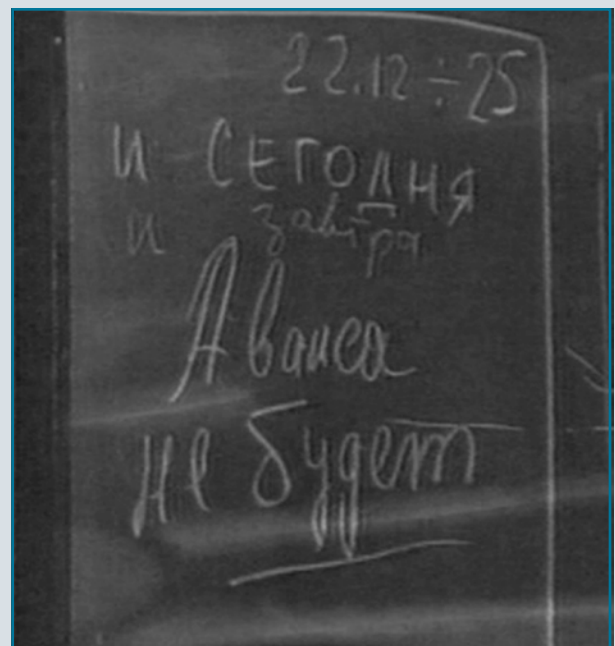 22.12÷25
и СЕГОДНЯ
и завтра
Аванса
не будет